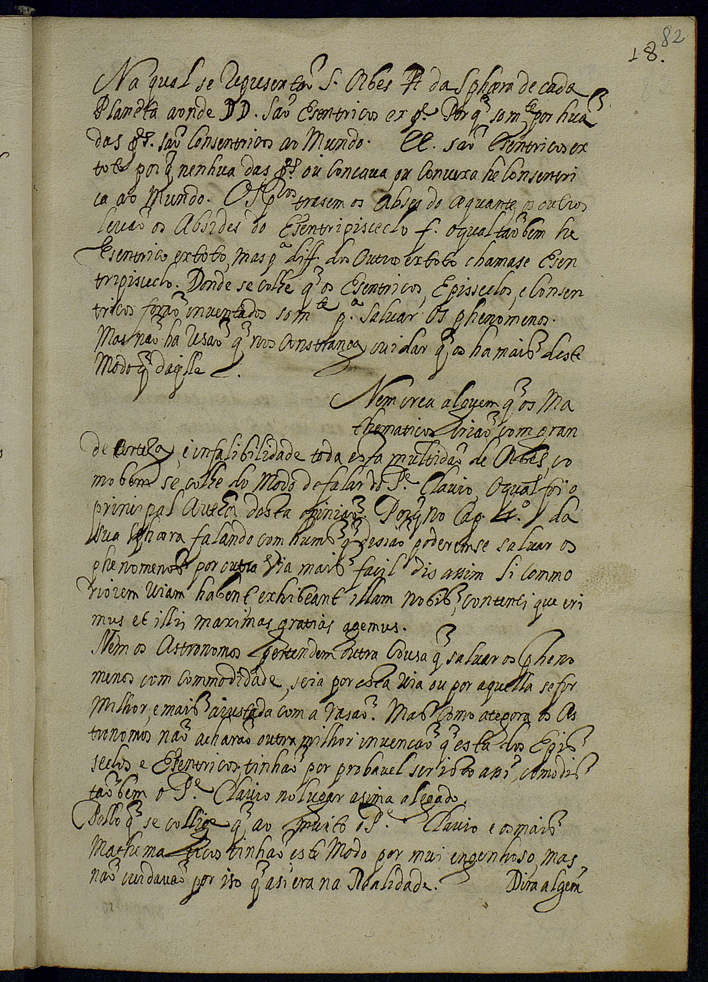 18. 82
Na qual se representão 5. Orbes da Sphæra de cada
Planeta aonde DD. são Esentricos ex p.te Porq̃ som.te por hũa
das p.tes são Consentricos ao Mundo. EE. são Esentricos ex
toto porq̃ nenhua das p.tes ou concaua ou Conuexa he Consentri
ca ao Mundo. Os trasem os Absy do aquante, e outros
leuão os Absides do Esentripisceclo f. o qual tãobem he
Esentrico ex toto, mas p.a diff. dos Outros ex toto chamase Esen
tripisceclo. Donde se colhe q̃ os Esentricos, Episseclos, e Consen
tricos forão inuentados som.te p.a Saluar Os phenomenos.
Mas não ha Rasão q̃ nos Constranga cuidar q̃ os ha mais deste
Modo q̃ daq̃lle.
Nem creia alguem q̃ os Ma
thematicos com gran
de certeza, e infalibilidade toda esta multidão de Orbes, co
mo bem se colhe do Modo de falar do P.e Clauio, o qual foi o
principal Autor desta opinião. Porq̃ no Cap. 4.º da
sua Sphæra falando com huns q̃ disião poderemse saluar os
phenomenos por outra Via mais facil dis assim Si commo
diorem uiam habent exhibeant illam nobis, contenti que eri
mus et illis maximas gratias agemus.
Nem os Astronomos pertendem outra Cousa q̃ saluar os pheno
menos com commodidade, seia por esta uia ou por aquella se for
milhor, e mais aiustada com a rasão. Mas como atepora os As
tronomos não acharão outra milhor inuenção q̃ esta dos Epis
seclos e Esentricos, tinhão por probauel ser isto assi, como dis
tãobem o P.e Clauio no lugar asima alegado.
Pello q̃ se collige q̃ ao muito o P.e Clauio e os mais
Mathematicos tinhão este Modo por mui engenhoso, mas
não cuidauão por isso q̃ asi era na Realidade. Dira algem